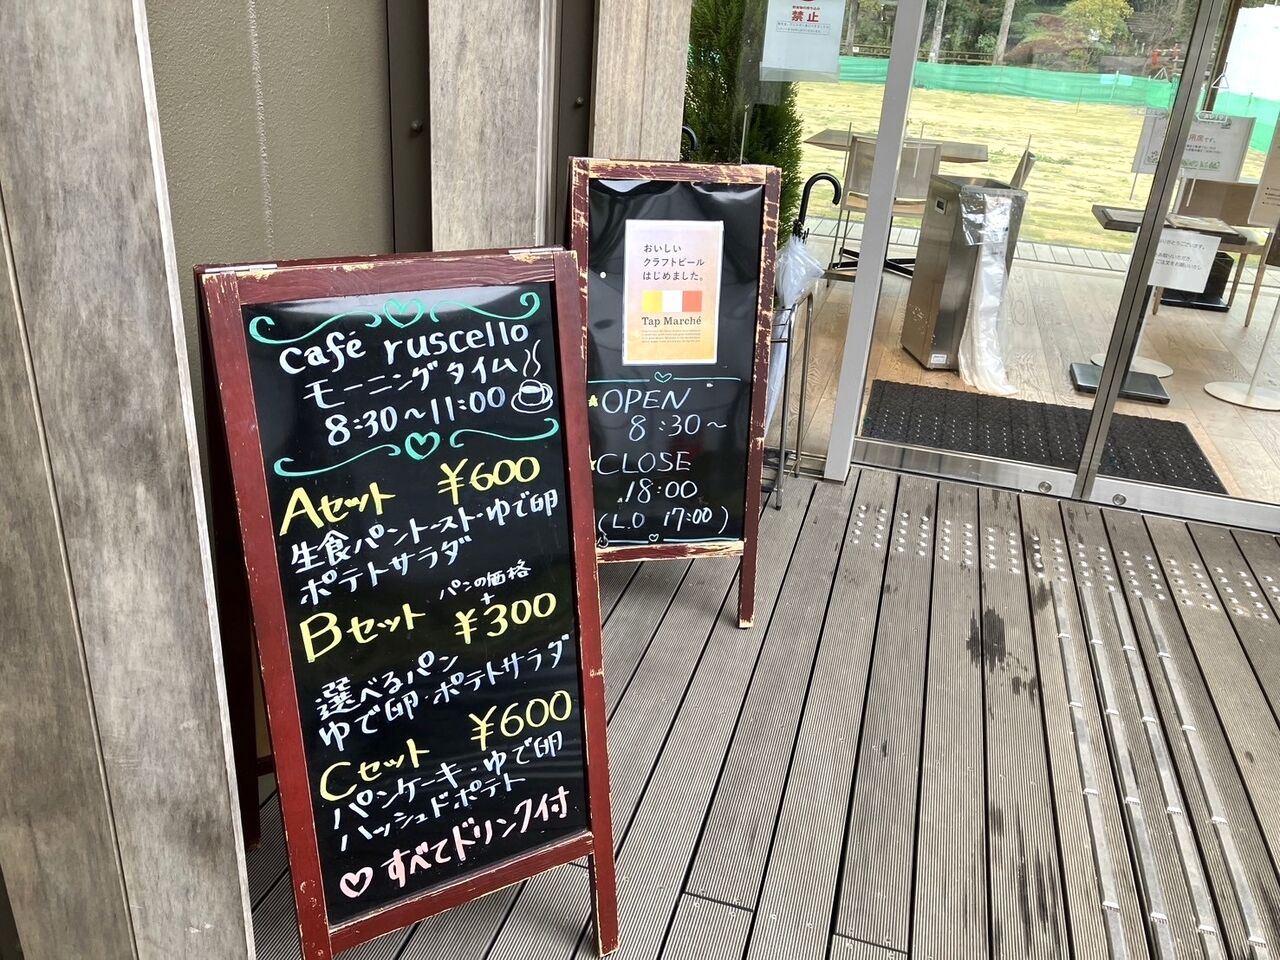 café ruscello
モーニングタイム
8:30~11:00
Aセット ¥600
生食パントースト・ゆで卵
ポテトサラダ
Bセット パンの価格
+
¥300
選べるパン
ゆで卵・ポテトサラダ
Cセット ¥600
パンケーキ・ゆで卵
ハッシュドポテト
♡すべてドリンク付
おいしい
クラフトビール
はじめました。
Tap Marché
OPEN
8:30~
CLOSE
18:00
(L.O 17:00)
禁止